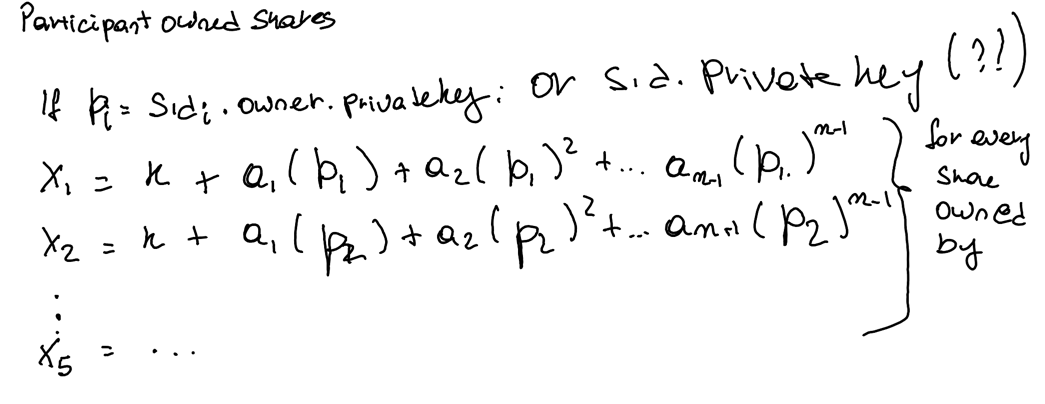 Participant owned shares
If p_i = Sid_i . owner . privatekey ; or s.d. Private key (?!)
X_1 = k + a_1 ( p_1 ) + a_2 ( p_1 )^2 + ... a_{n-1} ( p_1 )^{n-1}
X_2 = k + a_1 ( p_2 ) + a_2 ( p_2 )^2 + ... a_{n-1} ( p_2 )^{n-1}
⋮
X_5 = ...
for every
share
owned
by